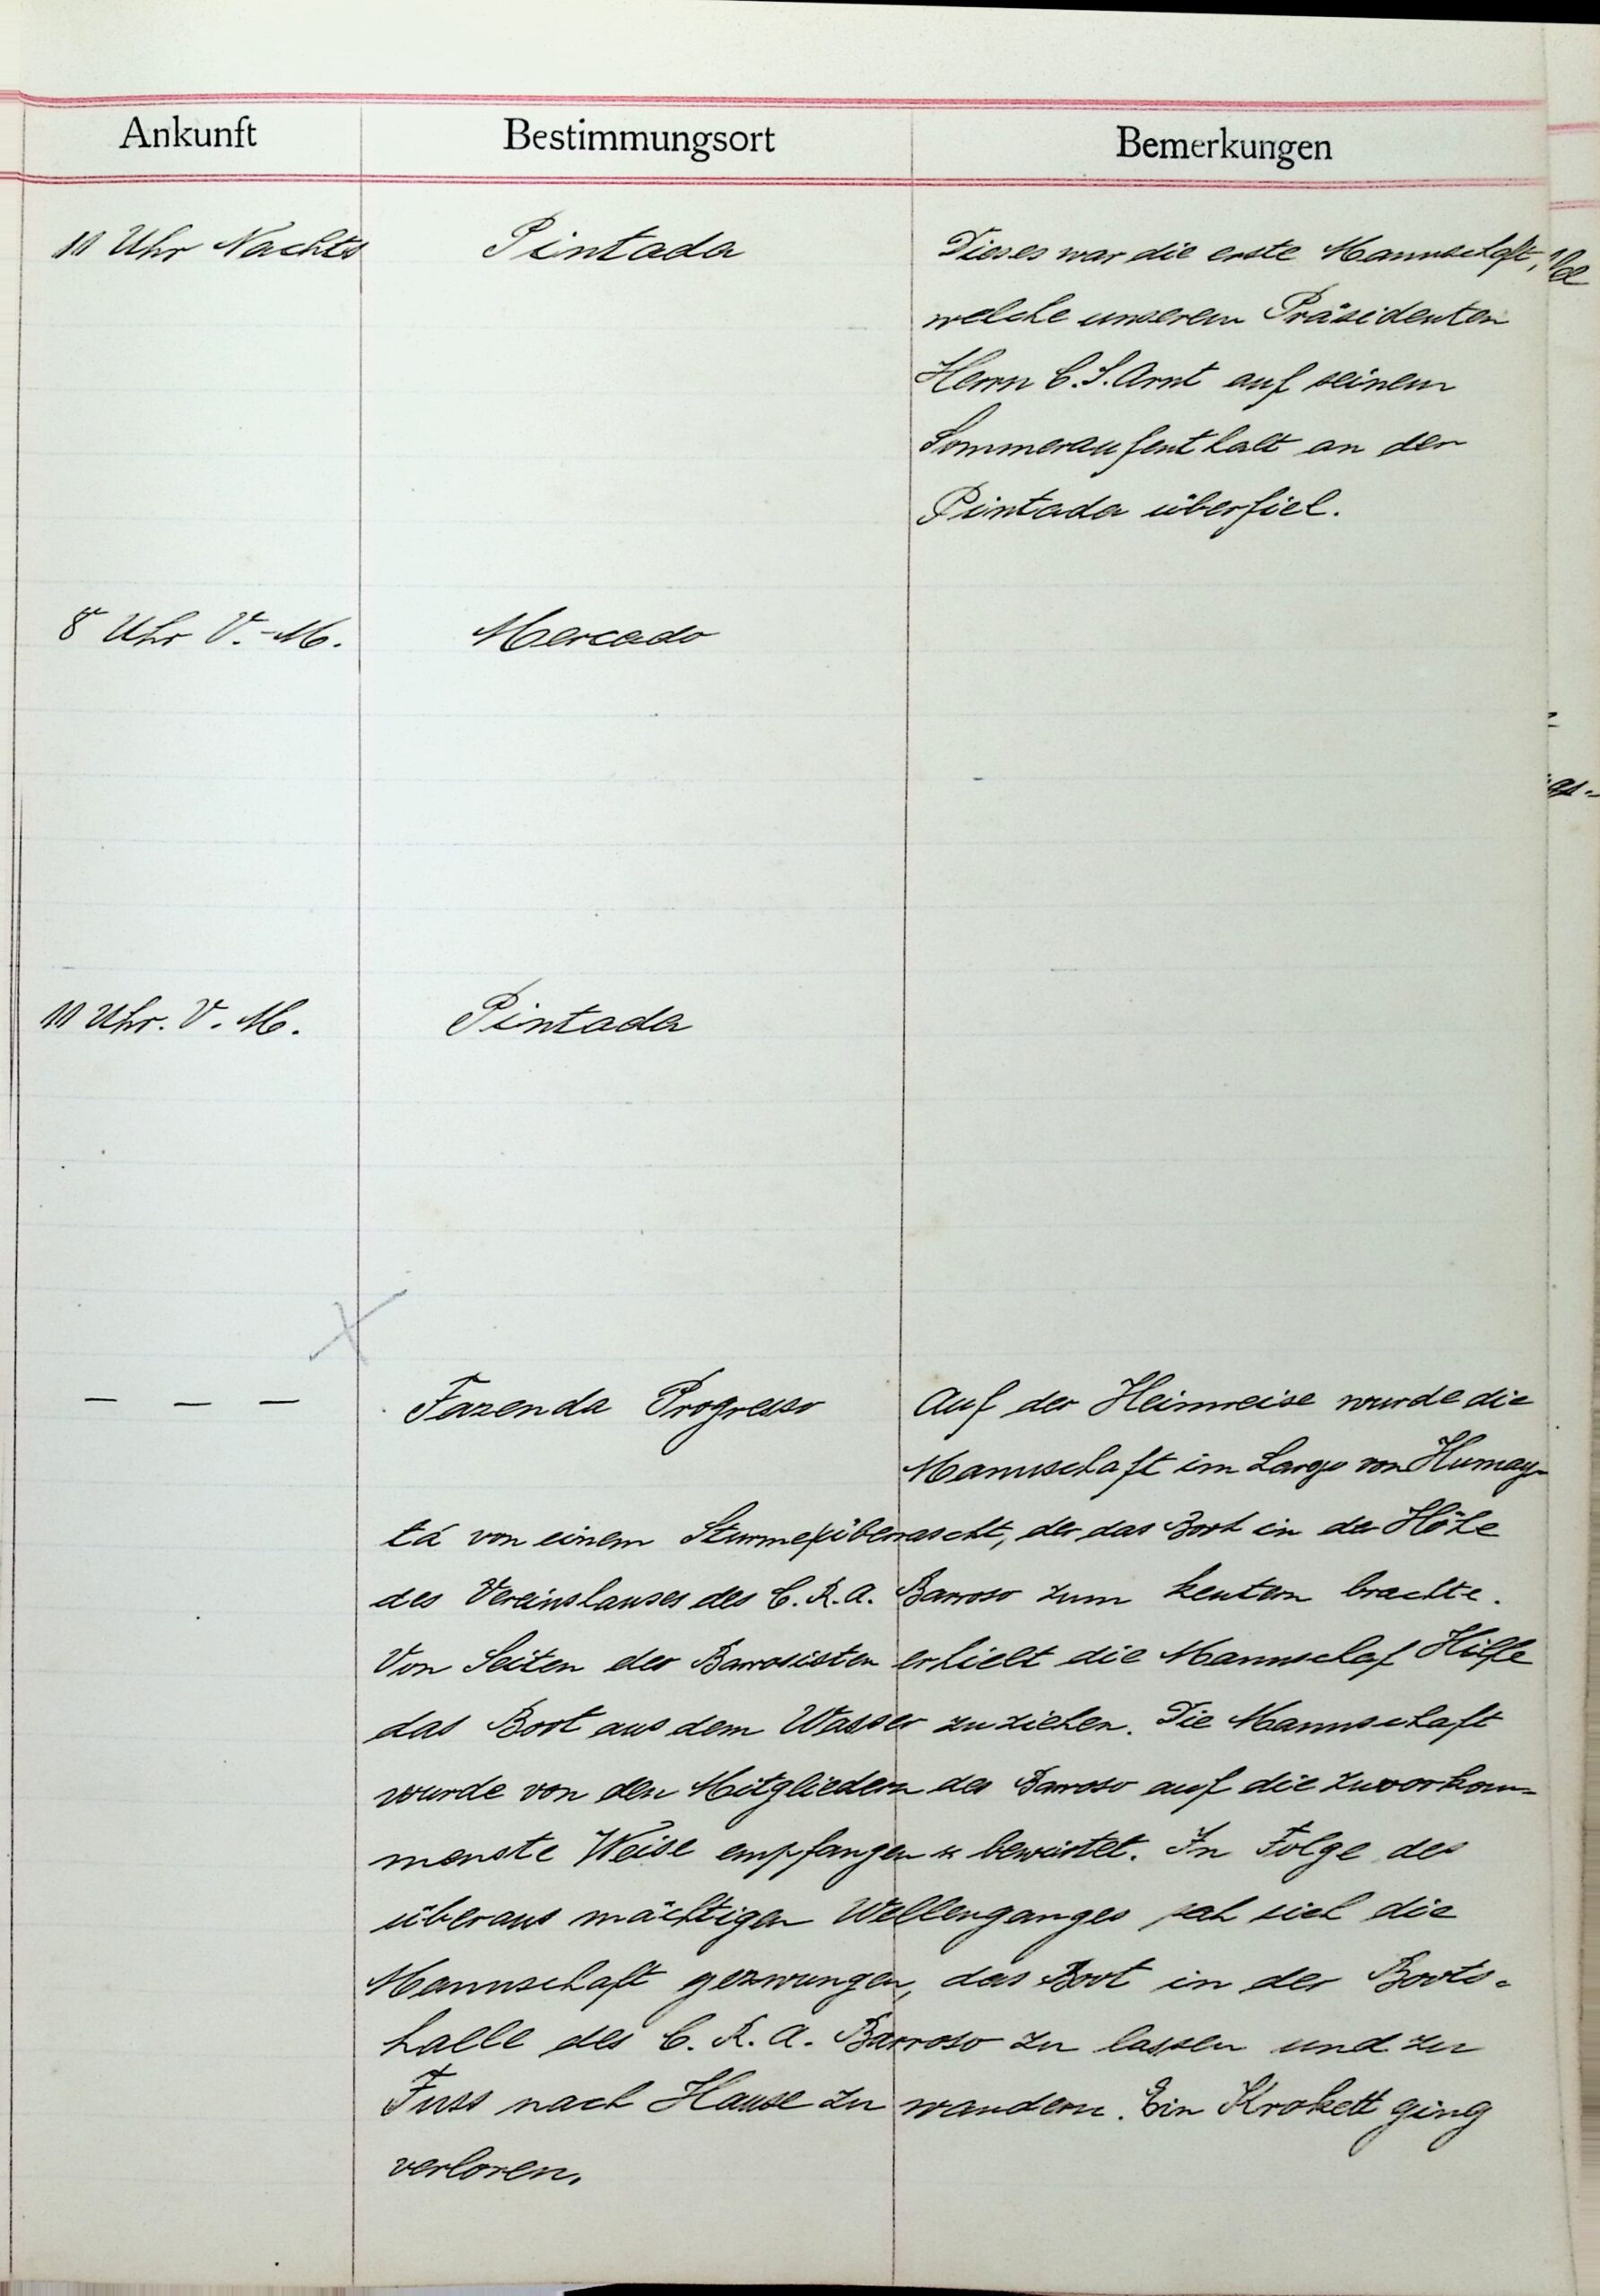 Ankunft Bestimmungsort Bemerkungen
11 Uhr Nachts Pintada Dieses war die erste Mannschaft,
welche unserem Präsidenten
Herrn C. S. Arnt auf seinem
Sommeraufenthalt an der
Pintada überfiel.
8 Uhr V.-M. Mercado
11 Uhr. V. M. Pintada
— — — Fazenda Progresso Auf der Heimreise wurde die
Mannschaft im Largo von Humay-
tá von einem Sturme überrascht, der das Boot in der Höhe
des Vereinshauses des C. R. A. Barroso zum kentern brachte.
Von Seiten der Barrosisten erhielt die Mannschaf Hilfe
das Boot aus dem Wasser zu ziehen. Die Mannschaft
wurde von den Mitgliedern des Barroso auf die zuvorkom-
menste Weise empfangen u bewirtet. In Folge des
überaus mächtigen Wellenganges sah sich die
Mannschaft gezwungen, das Boot in der Boots-
halle des C. R. A. Barroso zu lassen und zu
Fuss nach Hause zu wandern. Ein Krokett ging
verloren.